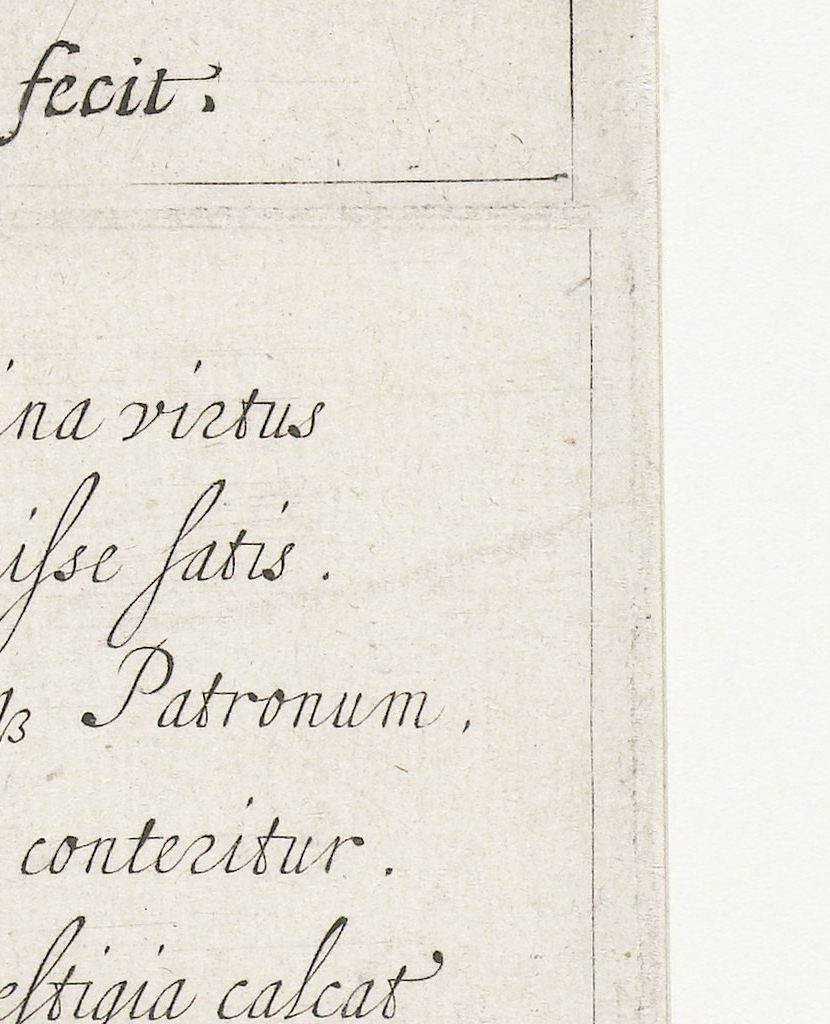 fecit.
ina virtus
iſse ſatis.
Patronum,
conteritur.
eſtigia calcat